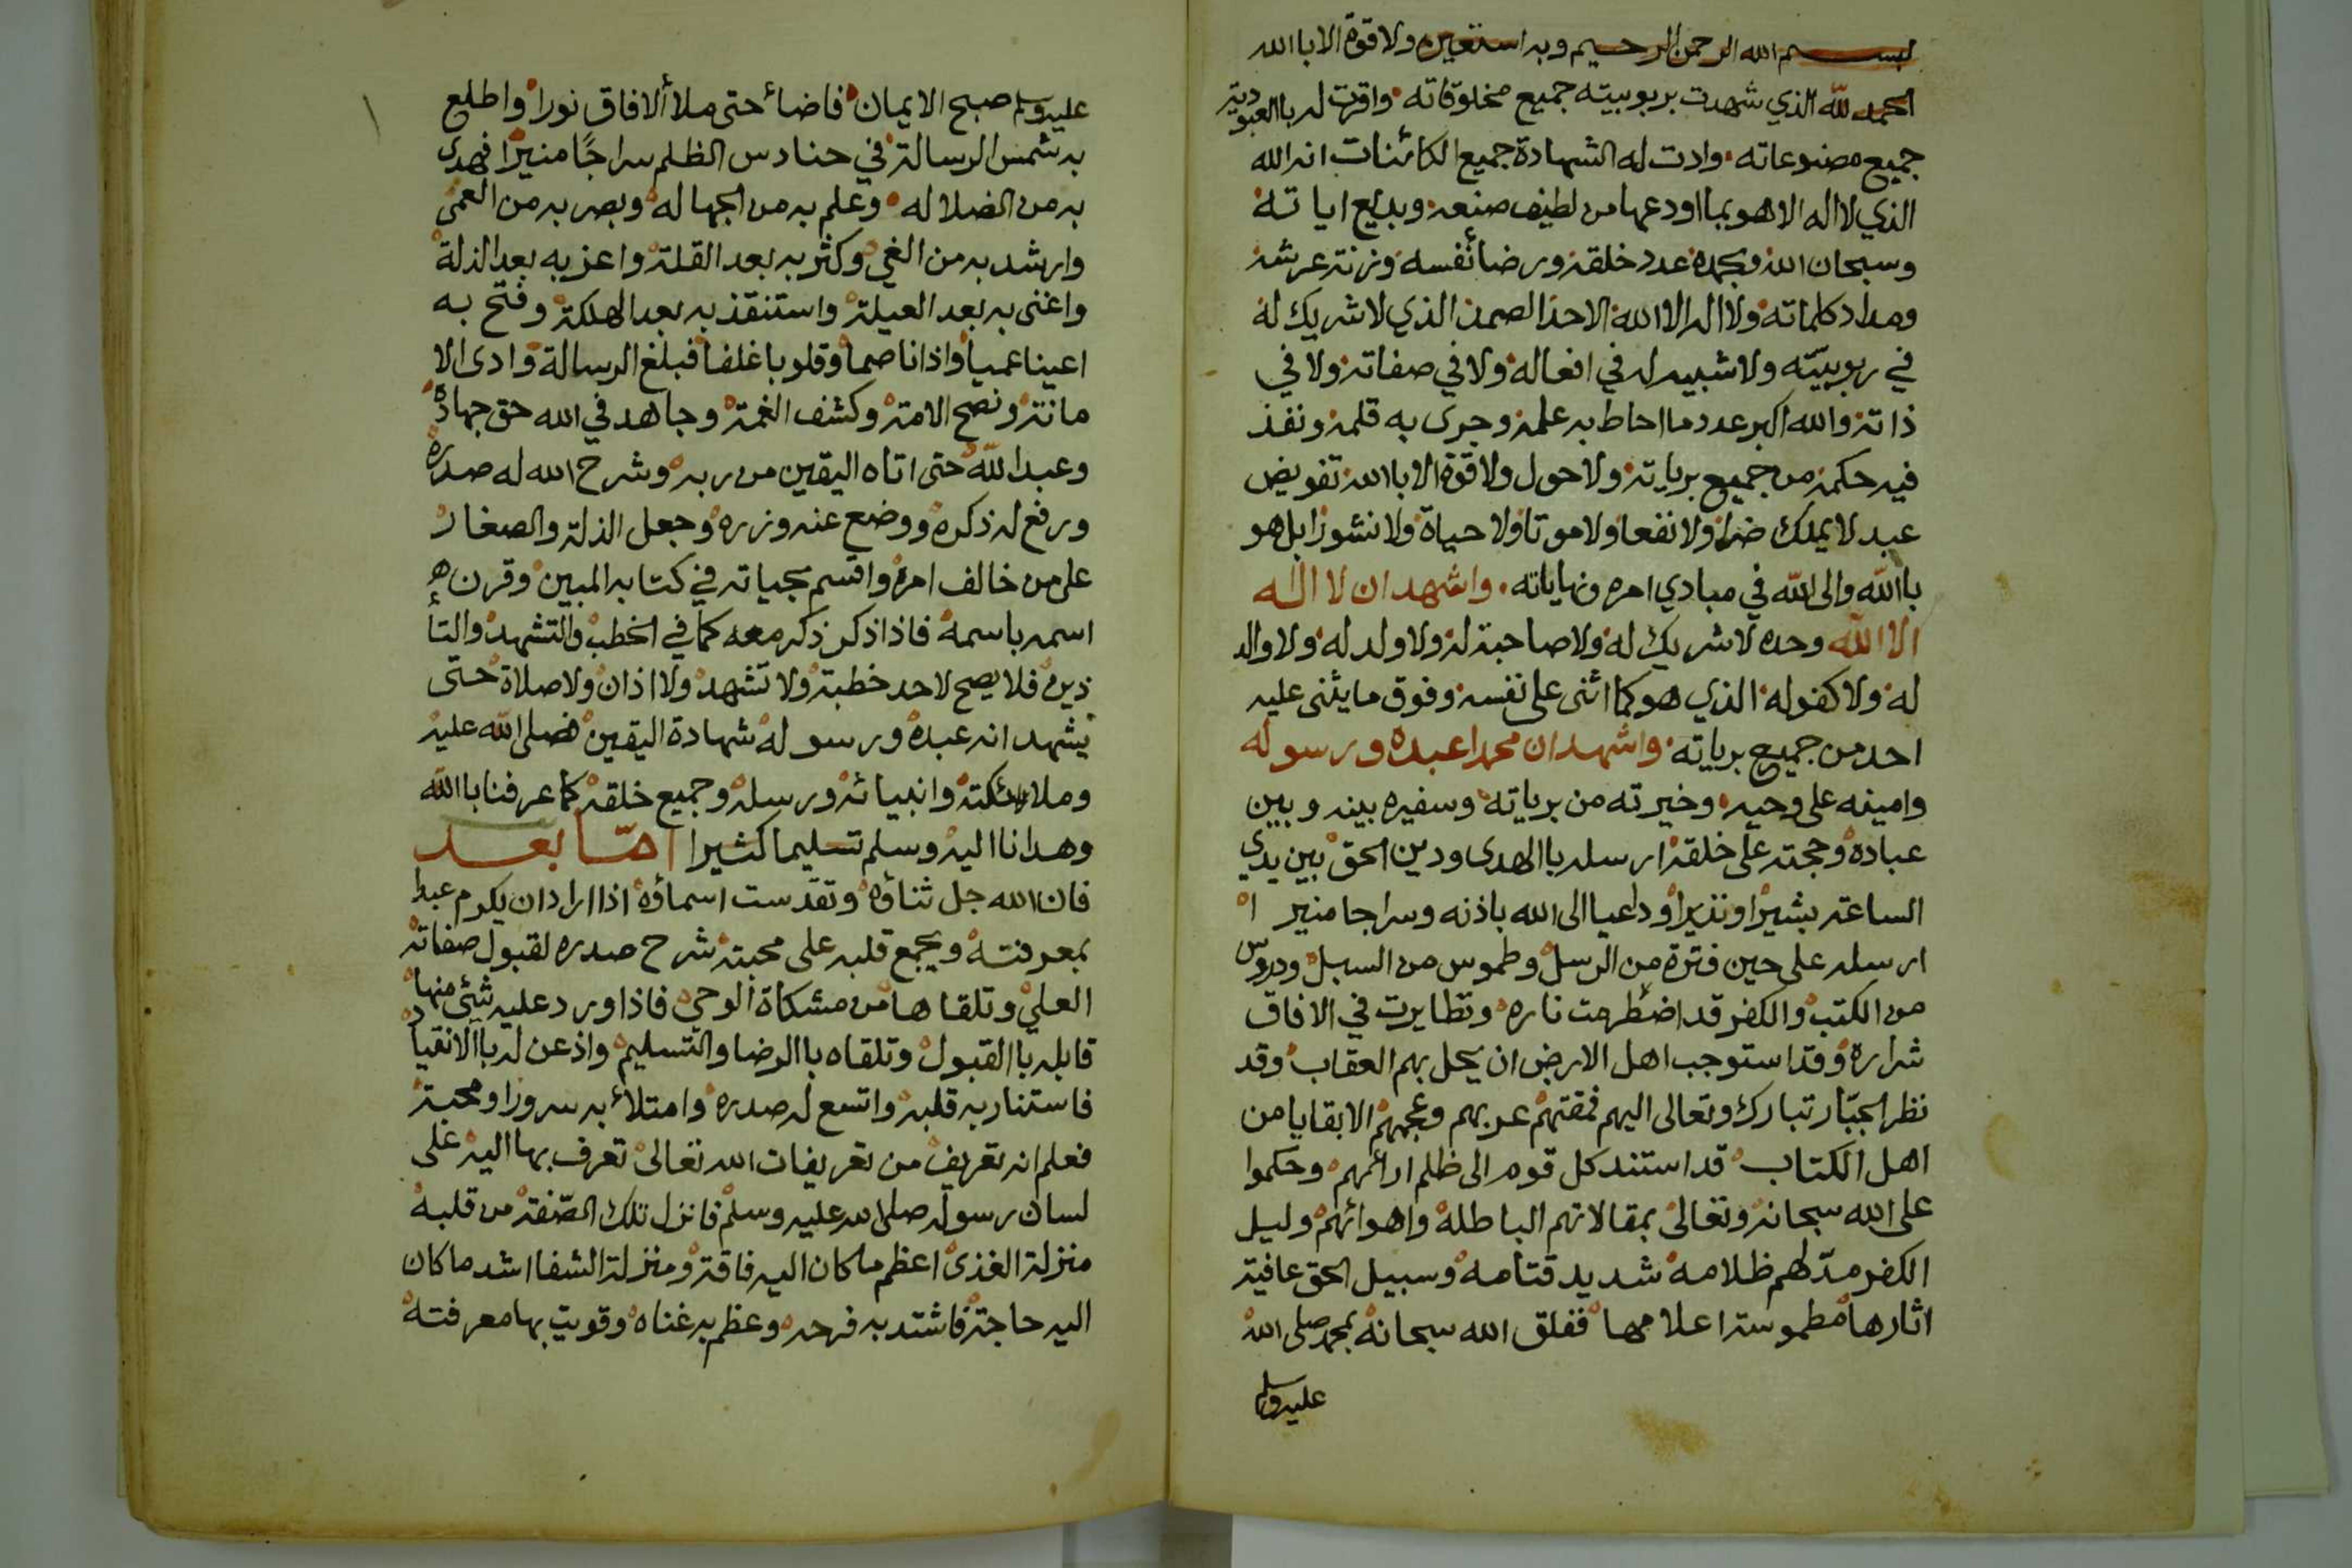 بسم الله الرحمن الرحيم وبه استعين ولا قوة الا باالله
الحمد لله الذي شهدت بربوبيته جميع مخلوقاته واقرت له باالعبودية
جميع مصنوعاته وادت له الشهادة جميع الكائنات انه الله
الذي لا اله الا هو بما اودعها من لطيف صنعه وبديع اياته
وسبحان الله وبحمده عدد خلقه ورضأنفسه وزنة عرشه
ومداد كلماته ولا اله الا الله الاحد الصمد الذي لا شريك له
في ربوبيّته ولا شبيه له في افعاله ولا في صفاته ولا في
ذاته والله اكبر عدد ما احاط به علمه وجرى به قلمه ونفذ
فيه حكمه من جميع برياته ولا حول ولا قوة الا باالله تفويض
عبد لا يملك ضرا ولا نفعا ولا موتا ولا حياة ولا نشورا بل هو
باالله والى الله في مبادي امره ونهاياته واشهد ان لا اله
الا الله وحده لا شريك له ولا صاحبة له ولا ولد له ولا والد
له ولا كفو له الذي هو كما اثنى على نفسه وفوق ما يثنى عليه
احد من جميع برياته واشهد ان محمدا عبده ورسوله
وامينه على وحيه وخيرته من برياته وسفيره بينه وبين
عباده وحجته على خلقه ارسله باالهدى ودين الحق بين يدي
الساعة بشيرا ونذيرا وداعيا الى الله باذنه وسراجا منيرا
ارسله على حين فترة من الرسل وطموس من السبل ودروس
من الكتب والكفر قد اضطرمت ناره وتطايرت في الافاق
شراره وقد استوجب اهل الارض ان يحل بهم العقاب وقد
نظر الجبّار تبارك وتعالى اليهم فمقتهم عربهم وعجمهم الا بقايا من
اهل الكتاب قد استند كل قوم الى ظلم ارائهم وحكموا
على الله سبحانه وتعالى بمقالاتهم الباطله واهوائهم وليل
الكفر مدّلهم ظلامه شديد قتامه وسبيل الحق عافية
اثارها مطموسة اعلامها ففلق الله سبحانه بمحمد صلى الله
عليه وسلم
عليه وسلم صبح الايمان فاضأ حتى ملأ ألافاق نورا واطلع
به شمس الرسالة في حنادس الظلم سراجًا منيرًا فهدى
به من الضلاله وعلم به من الجهاله وبصر به من العمى
وارشد به من الغي وكثر به بعد القلة واعز به بعد الذلة
واغنى به بعد العيلة واستنقذ به بعد الهلكة وفتح به
اعينا عميا واذانا صما وقلوبا غلفا فبلغ الرسالة وادى الا
مانة ونصح الامة وكشف الغمة وجاهد في الله حق جهاده
وعبد الله حتى اتاه اليقين من ربه وشرح الله له صدره
ورفع له ذكره ووضع عنه وزره وجعل الذلة والصغار
على من خالف امره واقسم بحياته في كتابه المبين وقرن
اسمه باسمه فاذا ذكر ذكر معه كما في الخطب والتشهد والتأ
ذين فلا يصح لاحد خطبة ولا تشهد ولا اذان ولا صلاة حتى
يشهد انه عبده ورسوله شهادة اليقين فصلى الله عليه
وملائكته وانبيائه ورسله وجميع خلقه كما عرفنا باالله
وهدانا اليه وسلم تسليما كثيرا امّا بعد
فان الله جل ثناؤه وتقدست اسماؤه اذا اراد ان يكرم عبدا
بمعرفته ويجمع قلبه على محبته شرح صدره لقبول صفاته
العلي وتلقاها من مشكاة ألوحي فاذا ورد عليه شئ منها
قابله باالقبول وتلقاه باالرضا والتسليم واذعن له باالانقياد
فاستنار به قلبه واتسع له صدره وامتلأ به سرورا ومحبة
فعلم انه تعريف من تعريفات الله تعالى تعرف بها اليه على
لسان رسوله صلى الله عليه وسلم فانزل تلك الصّفة من قلبه
منزلة الغذى اعظم ما كان اليه فاقة ومنزلة الشفا اشد ما كان
اليه حاجة فاشتد به فرحه وعظم به غناه وقويت بها معرفته